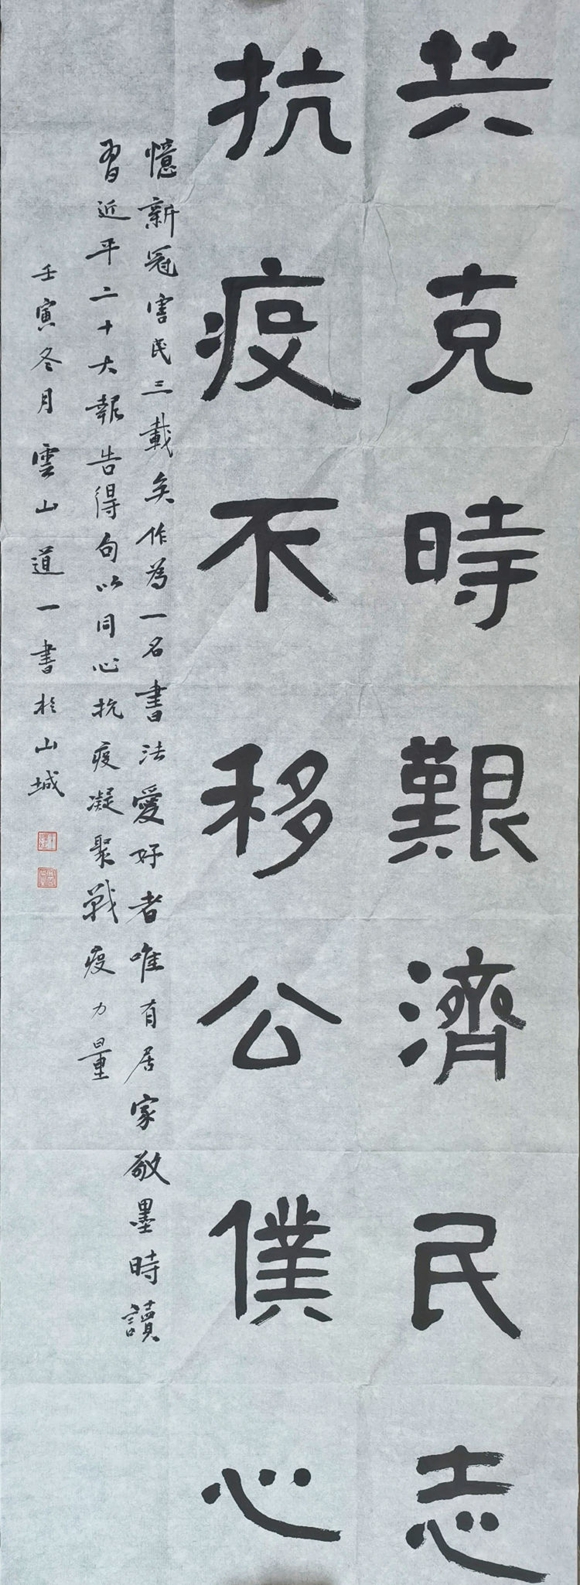 共克時艱濟民志
抗疫不移公僕心
憶新冠害民三載矣作為一名書法愛好者唯有居家敬墨時讀
習近平二十大報告得句以同心抗疫凝聚戰疫力量
壬寅冬月雲山道一書於山城